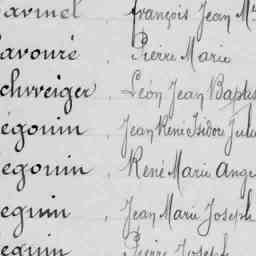 avinel François Jean M
avouré Pierre Marie
chweiger Léon Jean Baptis
égouin Jean René Isidore Jule
egouin René Marie Ange
eguin Jean Marie Joseph
eguin Pierre Joseph